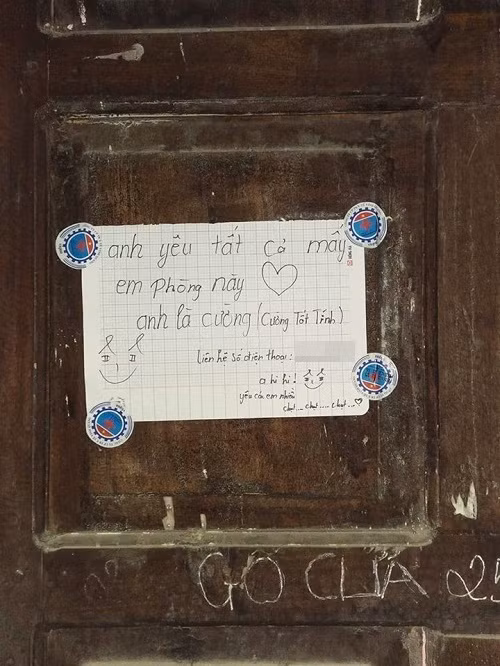 anh yêu tất cả mấy
em phòng này
anh là cường (Cường Tốt Tính)
liên hệ số điện thoại:
a hi hi!
yêu các em nhiều
chụt... chụt.... chụt...
GÕ CỬA 25